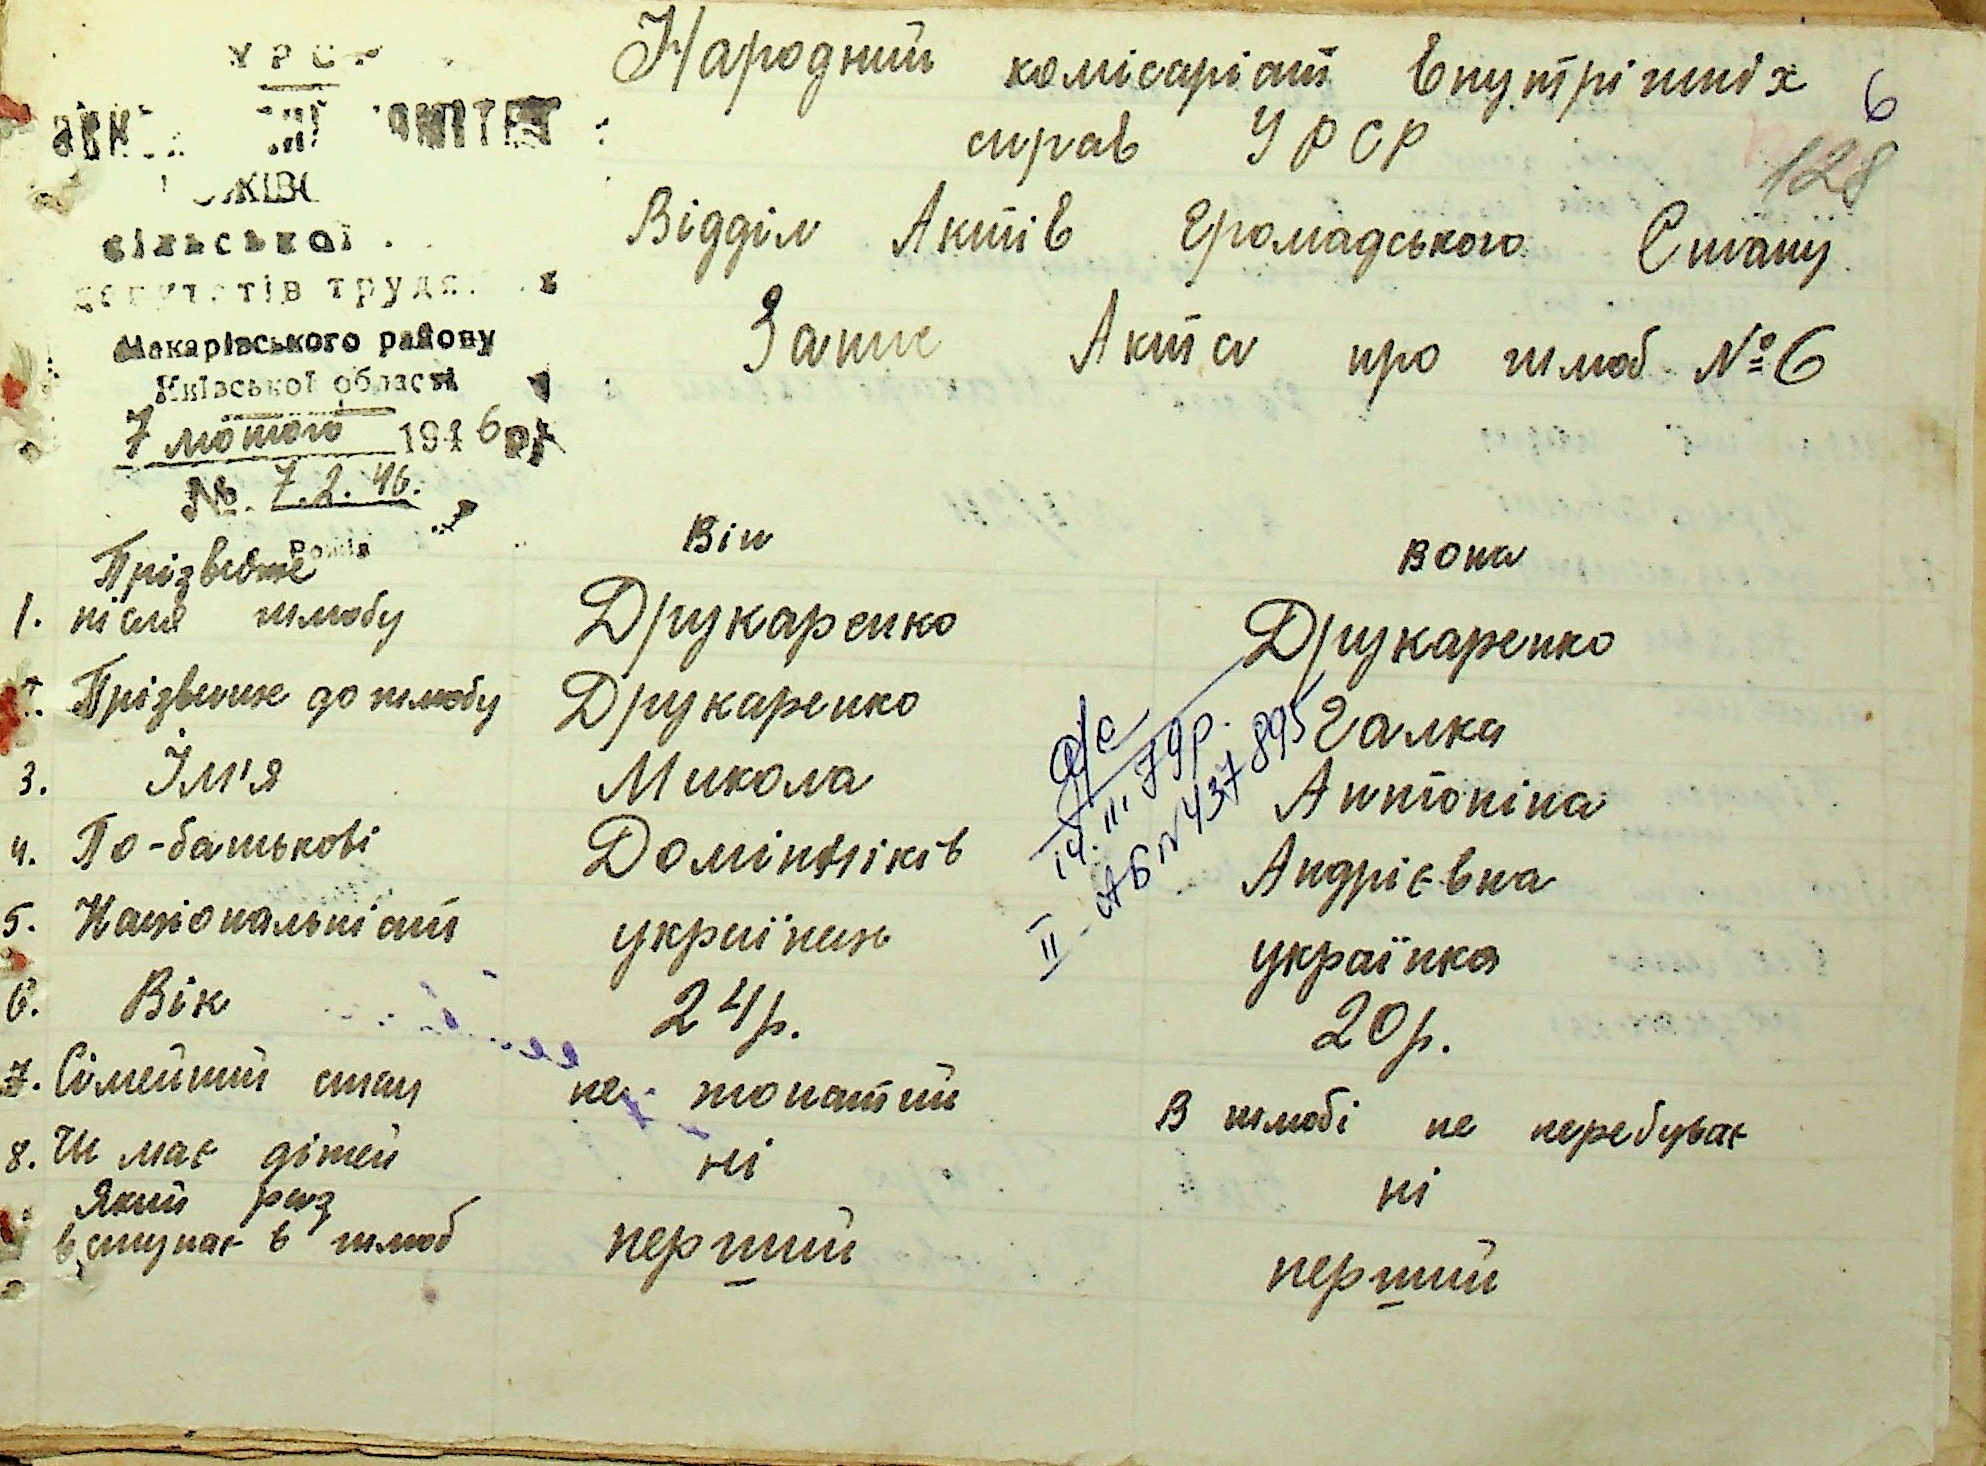 УРСР
сільської
депутатів
Макарівського району
Київської області
7 лютого 1946 р.
№. 7.2.46.
Народний комісаріат Внутрішніх
справ УРСР
6
128
Відділ Актів Громадського Стану
Запис Акта про шлюб №6
Він
Вона
Прізвище
1. після шлюбу Друкаренко Друкаренко
Прізвище до шлюбу Друкаренко Галка
3. Ім'я Микола Антоніна
4. По-батькові Домініків Андрієвна
14.III.79р.
II-АБ № 437895
5. Національність українець українка
6. Вік 24р. 20р.
7. Сімейний стан не жонатий В шлюбі не перебуває
8. Чи має дітей ні ні
Який раз
вступає в шлюб перший перший